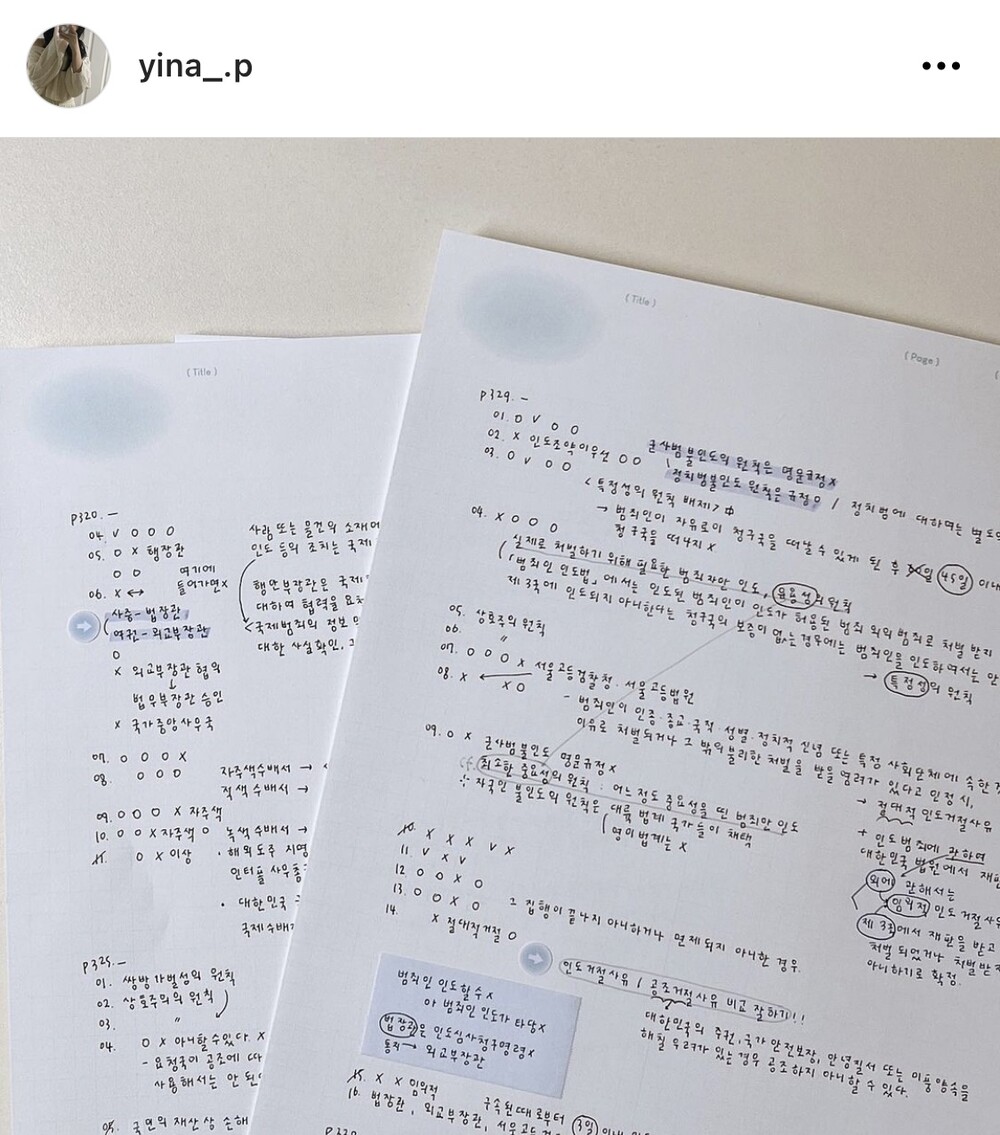 yina_.p
( Title )
p320. —
04. v o o o
05. o x 행장관
o o 여기에
06. x ↔ 들어가면x
사증 - 법장관
여권 - 외교부장관
o
x 외교부장관 협의
↓
법무부장관 승인
x 국가중앙사무국
07. o o o x
08. o o o
자주색수배서 →
적색수배서 →
09. o o o x 자주색
10. o o x 자주색 o 녹색수배서 →
11. o x 이상
· 해외도주 지명
인터폴 사무총
· 대한민국
국제수배
사람 또는 물건의 소재에
인도 등의 조치는 국제
행안부장관은 국제
대하여 협력을 요
<국제범죄의 정보 및
대한 사실확인,
p325. —
01. 쌍방가벌성의 원칙
02. 상호주의의 원칙
03. "
04. o x 아니할수있다 x
- 요청국이 공조에 따
사용해서는 안 된
05. 국민의 재산상 손해
( Title )
( Page )
p329. —
01. o v o o
02. x 인도조약이우선 o o
03. o v o o
군사범불인도의 원칙은 명문규정x
정치범불인도 원칙은 규정o / 정치범에 대하여는 별도의
< 특정성의 원칙 배제 >
→ 범죄인이 자유로이 청구국을 떠날 수 있게 된 후 45일 이내
청구국을 떠나지 x
04. x o o o
실제로 처벌하기 위해 필요한 범죄자만 인도, 유용성의 원칙
「범죄인 인도법」에서는 인도된 범죄인이 인도가 허용된 범죄 외의 범죄로 처벌 받지
제 3국에 인도되지 아니한다는 청구국의 보증이 없는 경우에는 범죄인을 인도하여서는 안
→ 특정성의 원칙
05. 상호주의 원칙
06. "
07. o o o x 서울고등검찰청, 서울고등법원
08. x ← x o
- 범죄인이 인종·종교·국적·성별·정치적 신념 또는 특정 사회단체에 속한
이유로 처벌되거나 그 밖의 불리한 처벌을 받을 염려가 있다고 인정 시,
→ 절대적 인도거절사유
09. o x 군사범불인도 명문규정x
cf. 최소한 중요성의 원칙 : 어느정도 중요성을 띤 범죄만 인도
∴ 자국인 불인도의 원칙은 대륙 법계 국가들이 채택
영미법계는 x
+ 인도범죄에 관하여
대한민국 법원에서 재판
외에 관해서는
임의적 인도 거절사유
제 3국에서 재판을 받고
처벌 되었거나 처벌받지
아니하기로 확정.
10. x x x v x
11. v x v
12 o o x o
13. o o x o
14. x 절대적거절 o
그 집행이 끝나지 아니하거나 면제되지 아니한 경우.
인도거절사유 / 공조거절사유 비교 잘하기!!
대한민국의 주권, 국가안전보장, 안녕질서 또는 미풍양속을
해칠 우려가 있는 경우 공조하지 아니할 수 있다.
범죄인 인도할수x
아 범죄인 인도가 타당x
법장관은 인도심사청구명령x
통지 → 외교부장관
15. x x 임의적
구속된때로부터 3일
16. 법장관, 외교부장관, 서울고등